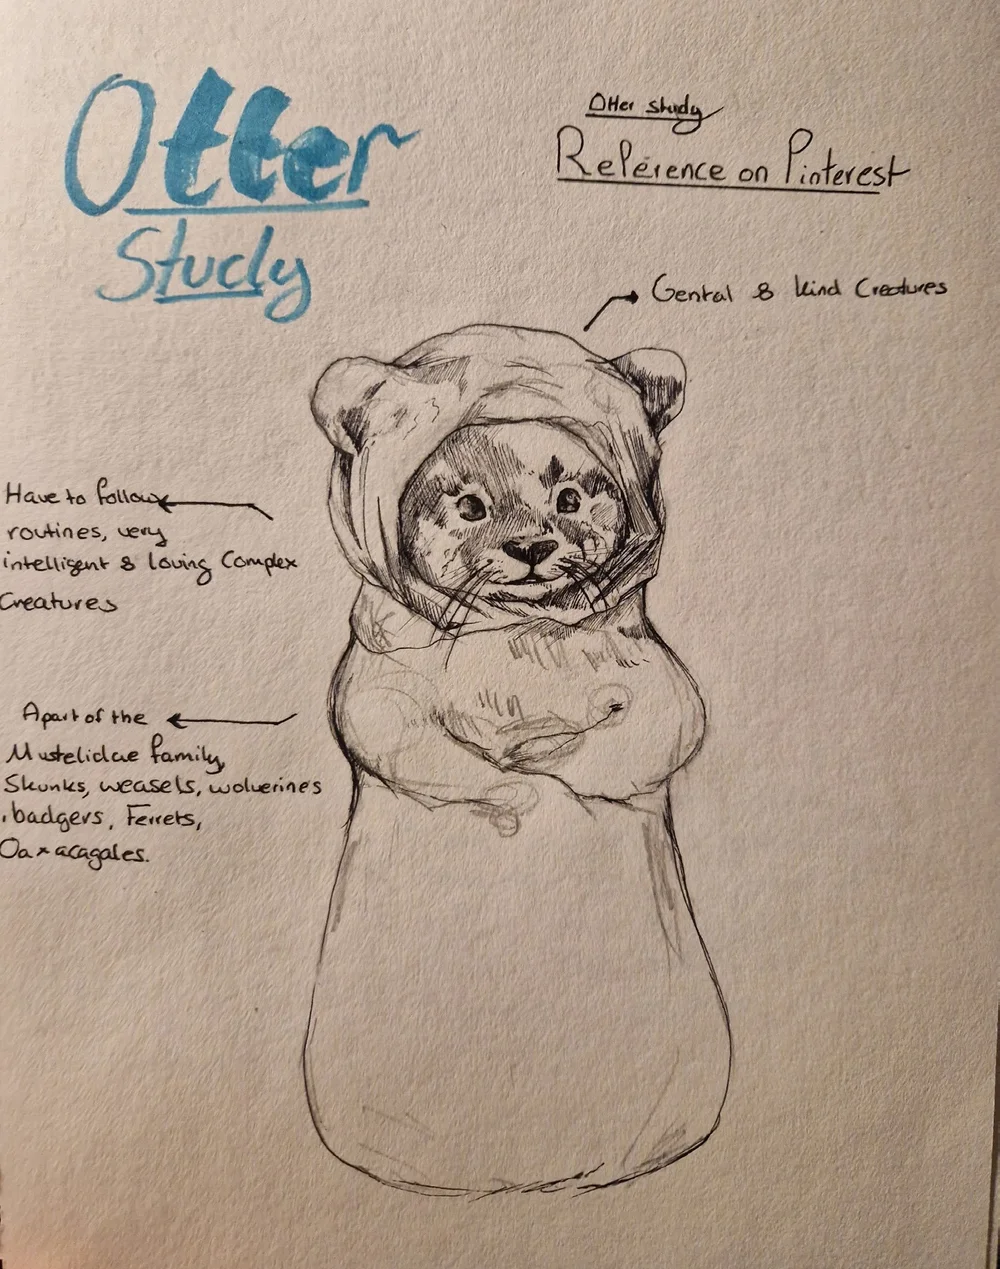 Otter
Study
Otter study
Reference on Pinterest
Gental & kind Creatures
Have to follow
routines, very
intelligent & loving Complex
Creatures
Apart of the
Mustelidae family,
Skunks, weasels, wolverines
, badgers, Ferrets,